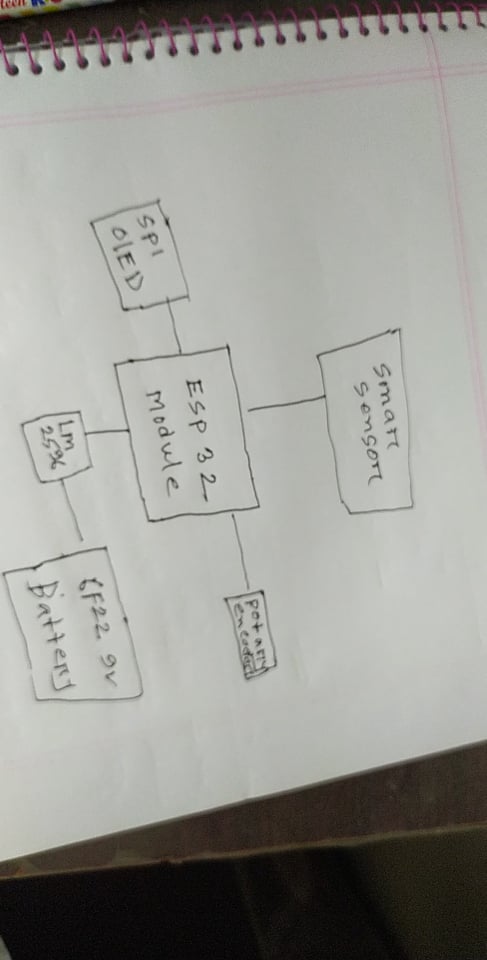 smart
sensor
potary
encoder
ESP 32
module
SPI
OLED
Lm
2596
6F22 9v
Battery